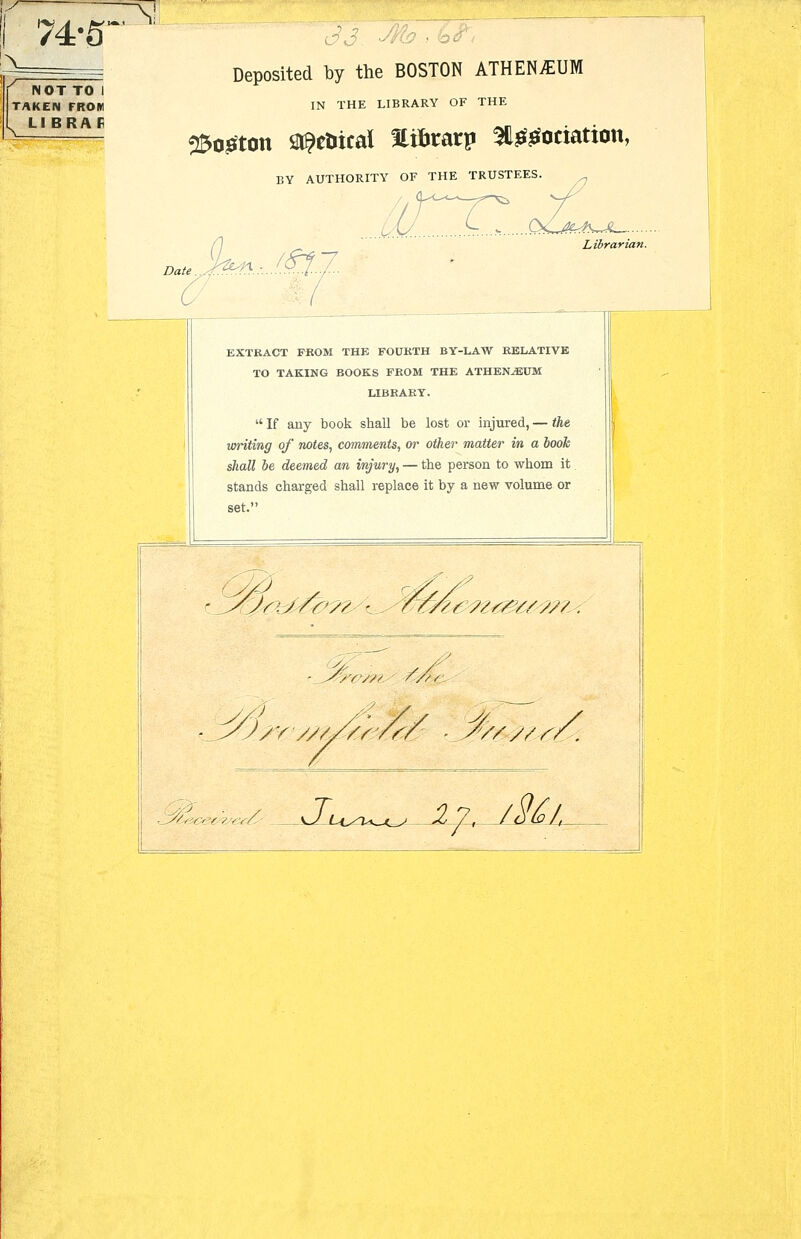 74·5
NOT TO
TAKEN FROM
LIBRAR
33 M. 68.
Deposited by the BOSTON ATHENÆUM
IN THE LIBRARY OF THE
Boston Medical Library Association,
BY AUTHORITY OF THE TRUSTEES.
Wm C. Lane
Librarian.
Date Jan. 1897
EXTRACT FROM THE FOURTH BY-LAW RELATIVE
TO TAKING BOOKS FROM THE ATHENÆUM
LIBRARY.
"If any book shall be lost or injured,—the
writing of notes, comments, or other matter in a book
shall be deemed an injury,—the person to whom it
stands charged shall replace it by a new volume or
set."
Boston Athenæum.
From the
Bromfield Fund.
Received June 27, 1861.